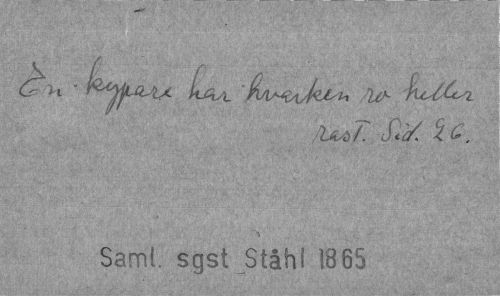 En kypare har hvarken ro heller
rast. Sid. 26.
Saml. sgst Ståhl 1865